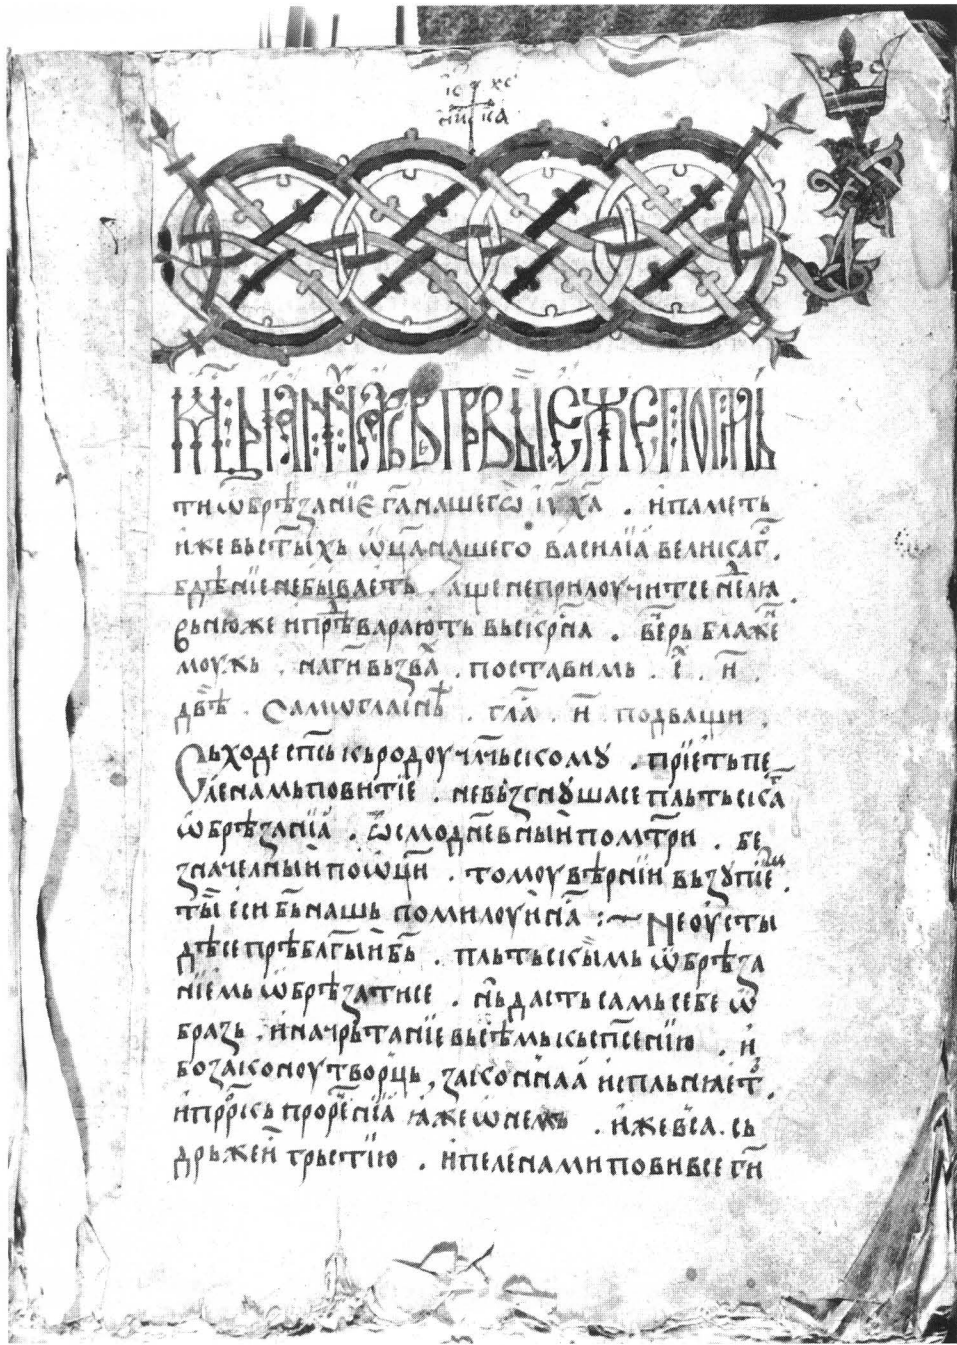 іс хс
ни ка
мⷭ҇ца іаннꙋара въ прьвыи еже по пльⷮ
ти ѡ҆брѣꙁаніе га҃ нашегѡ і҆ѵ҃ х҃а . и҆ паметь
и҆же вь ст҃ыхь ѡ҆ц҃а нашего василіа великаⷢ҇ .
бдѣніе не бываѥть . аще не прилоучитсе неⷣлꙗ .
вечерь блаже҃
моужь . на ги҃ вьꙁва҃ . поставимь . е҃ . и҃ .
двѣ . самогласнѣ . гла҃ . и҃ подващи .
Сьходе сп҃сь кь родоу чл҃чьскомꙋ . прїеть пе
ленамь повитїе . не вьꙁгнꙋша се пльтьскаⷢ
ѡ҆брѣꙁанїа . ѡ҆смодневныи по мт҃ри . бе
ꙁначелныи по ѡ҆ц҃и . томоу вѣрнїи вьꙁꙋпїеⷨ .
ты҃ е҆си бь҃ нашь помилоуи на҃ :~ Не оу҆сты
дѣ се прѣбл҃гыи б҃ь . пльтьскыимь ѡ҆брѣꙁа
нїемь ѡ҆брѣꙁати се . нь дасть самь себе ѡ҆
браꙁь . и҆ начрьтанїе вьсѣмь кь сп҃сенїю . и҆
бо ꙁаконоу творць , ꙁаконнаа и҆спльнꙗеть .
и҆ прⷪ҇рⷪ҇кь прореченїа ꙗ҆же ѡ҆ немь . и҆же вса . сь
дрьжеи трьстїю . и҆ пеленами повивсе ги҃